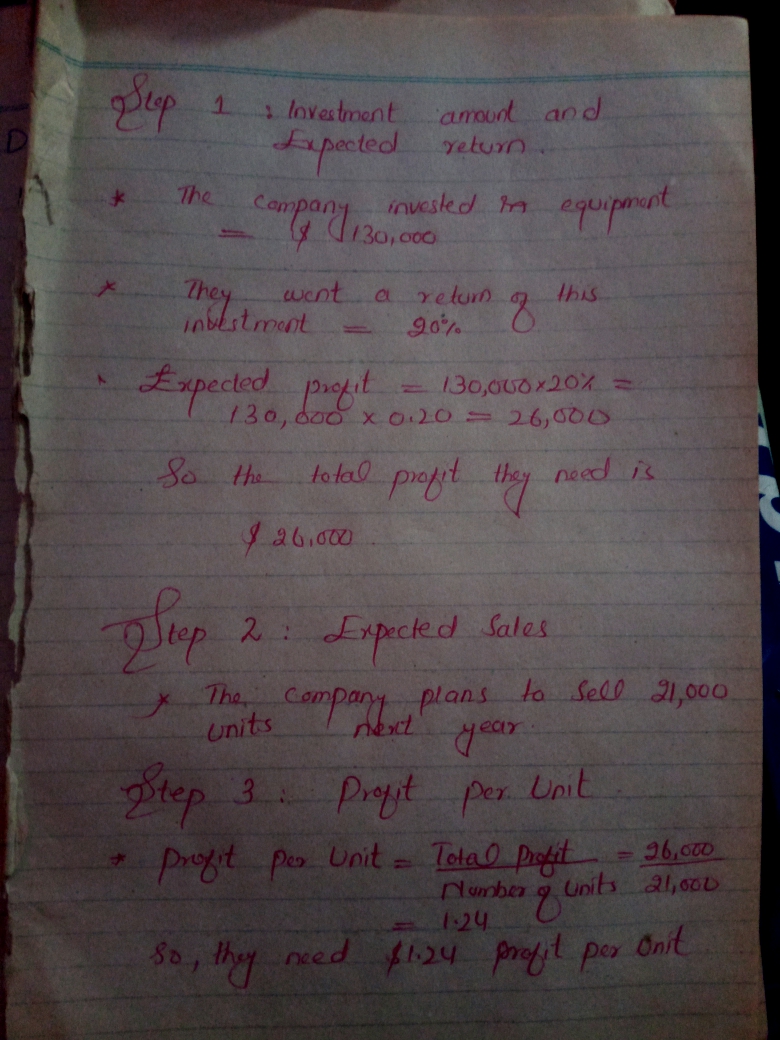 Step 1 : Investment amount and
Expected return.
* The company invested in equipment
= $ 130,000
* They want a return of this
investment = 20%
* Expected profit = 130,000x20% =
130,000 x 0.20 = 26,000
So the total profit they need is
$ 26,000
Step 2 : Expected Sales
* The company plans to sell 21,000
units next year.
Step 3 : Profit per Unit
* Profit per Unit = Total Profit = 26,000
Number of units 21,000
= 1.24
So, they need $1.24 profit per Unit